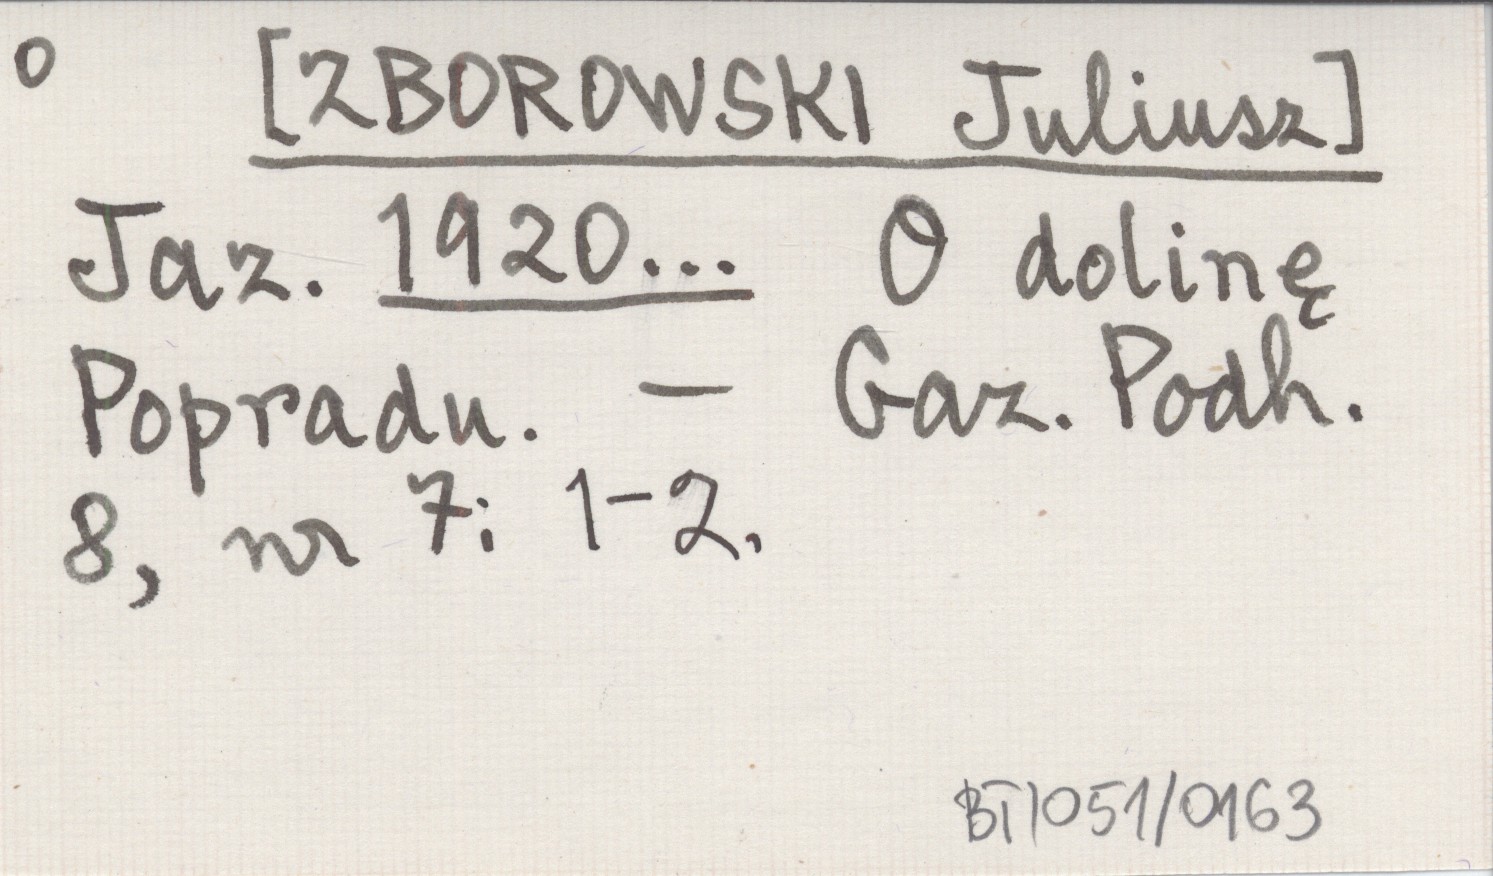 o [ZBOROWSKI Juliusz]
Jaz. 1920... O dolinę
Popradu. — Gaz. Podh.
8, nr 7: 1-2.
BT1051/0163